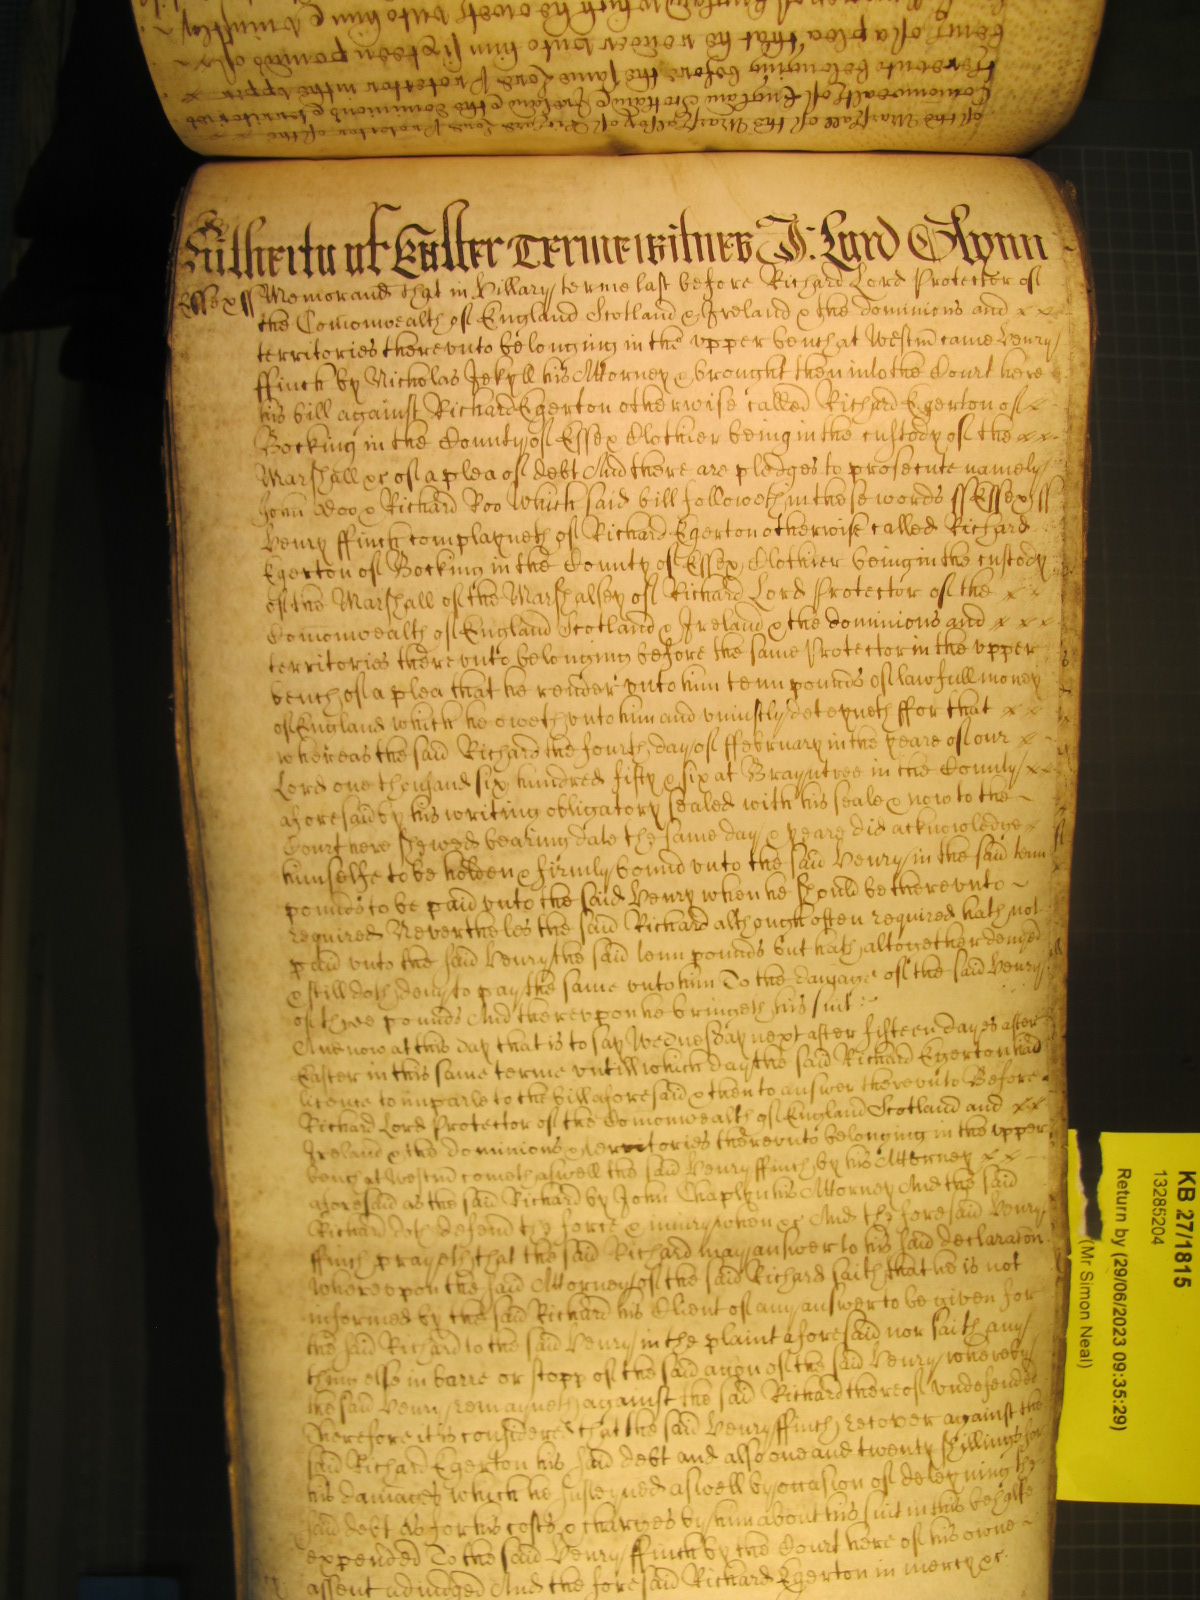 of the Marshall of the Marshalsey of Richard Lord Protector of the
Comonwealth of England Scotland & Ireland & the dominions & territories
thereunto belonging before the same Lord Protector in the upper
bench of a plea that he render unto him sixteen pounds of
Hitherto of Easter Terme witnes J: Lord Glynn
Essex ss Memorand that in Hillary terme last before Richard Lord Protector of
the Comonwealth of England Scotland & Ireland & the dominions and
territories thereunto belonging in the upper bench at Westm came Henry
ffinch by Nicholas Jekyll his Attorney & brought then into the Court here
his bill against Richard Egerton otherwise called Richard Egerton of
Bocking in the County of Essex Clothier being in the custody of the
Marshall &c of a plea of debt And there are pledges to prosecute namely
John Doo & Richard Roo which said bill followeth in these words ss Essex ss
Henry ffinch complayneth of Richard Egerton otherwise called Richard
Egerton of Bocking in the County of Essex Clothier being in the custody
of the Marshall of the Marshalsey of Richard Lord Protector of the
Comonwealth of England Scotland & Ireland & the dominions and
territories thereunto belonging before the same Protector in the upper
bench of a plea that he render unto him tenn pounds of lawfull money
of England which he oweth unto him and uniustly deteyneth ffor that
whereas the said Richard the fourth day of ffebruary in the yeare of our
Lord one thousand six hundred fifty & six at Brayntree in the County
aforesaid by his writing obligatory sealed with his seale & now to the
Court here shewed bearing date the same day & yeare did acknowledge
himselfe to be holden & firmly bound unto the said Henry in the said tenn
pounds to be paid unto the said Henry when he should be thereunto
required Nevertheles the said Richard although often required hath not
paid unto the said Henry the said tenn pounds but hath altogether denyed
& still doth deny to pay the same unto him To the damage of the said Henry
of three pounds And thereupon he bringeth his suit
And now at this day that is to say Wednesday next after fifteen dayes after
Easter in this same terme untill which day the said Richard Egerton had
licence to imparle to the bill aforesaid & then to answer thereunto Before
Richard Lord Protector of the Comonwealth of England Scotland and
Ireland & the dominions & territories thereunto belonging in the upper
bench at Westm cometh aswell the said Henry ffinch by his Attorney
aforesaid as the said Richard by John Chaplyn his Attorney And the said
Richard doth defend the force & iniury when &c And the foresaid Henry
ffinch prayeth that the said Richard may answer to his said declaraton
Whereupon the said Attorney of the said Richard saith that he is not
informed by the said Richard his Client of any answer to be given for
the said Richard to the said Henry in the plaint aforesaid nor saith any
thing else in barre or stopp of the said accon of the said Henry whereby
the said Henry remayneth against the said Richard thereof undefended
Therefore it is considered that the said Henry ffinch recover against the
said Richard Egerton his said debt and also one and twenty shillings for
his damages which he susteyned aswell by occasion of deteyning the
said debt As for his costs & charges by him about his suit in this behalfe
expended To the said Henry ffinch by the Court here of his owne
assent adiudged And the foresaid Richard Egerton in mercy &c
KB 27/1815
13285204
Return by (29/06/2023 09:35:29)
(Mr Simon Neal)